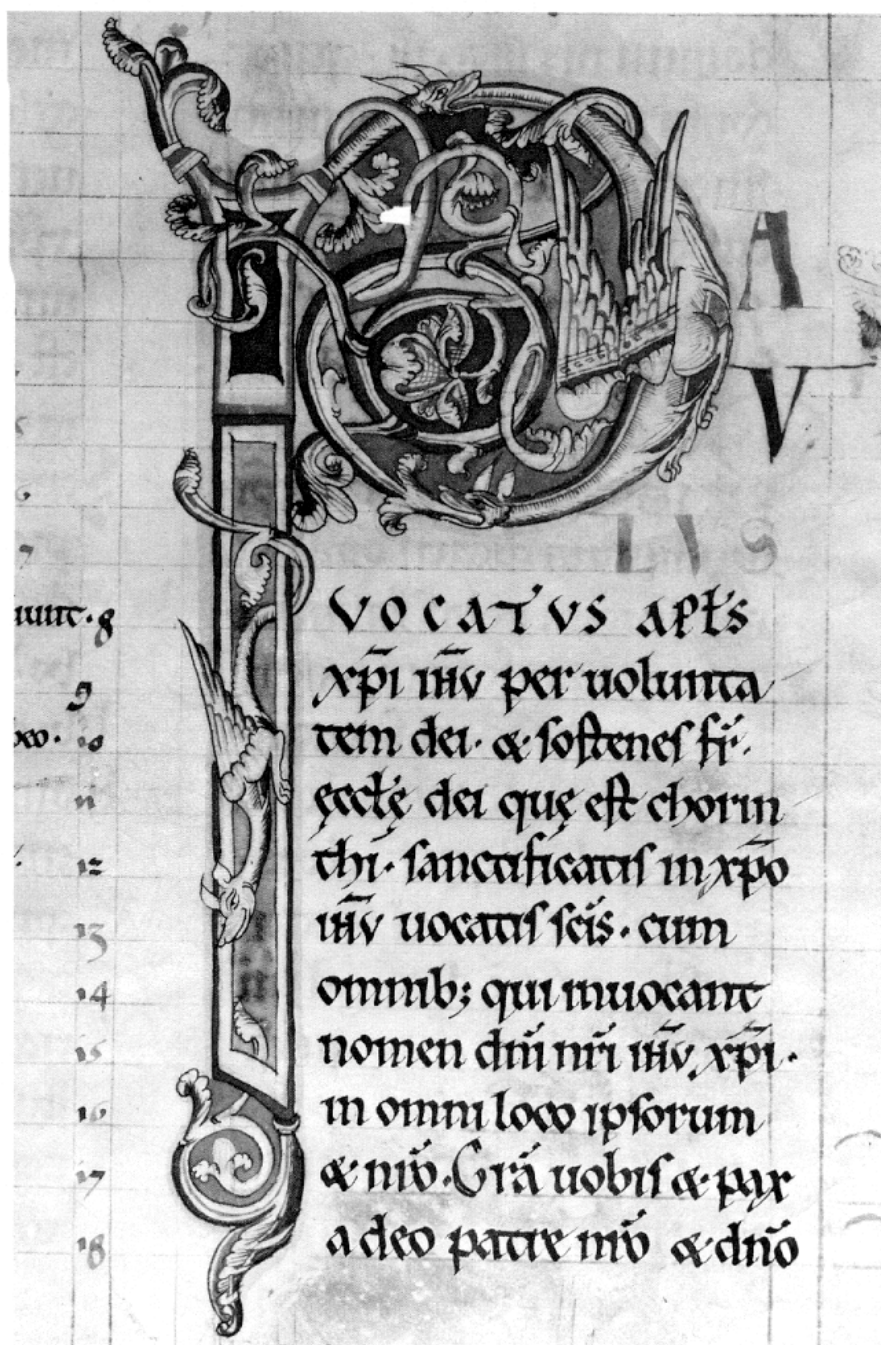 P A
V
L V S
VOCATVS APŁS
xp̄i ih̄v per uolunta
tem dei · & sostenes fr̄ ·
ęccłę dei quę est chorin
thi · sanctificatis in xp̄o
ih̄v uocatis sc̄is · cum
omnib; qui inuocant
nomen dn̄i nr̄i ih̄v xp̄i ·
in omni loco ipsorum
& nr̄o · Gr̄a uobis & pax
a deo patre nr̄o & dn̄o
7
8
9
10
11
12
13
14
15
16
17
18